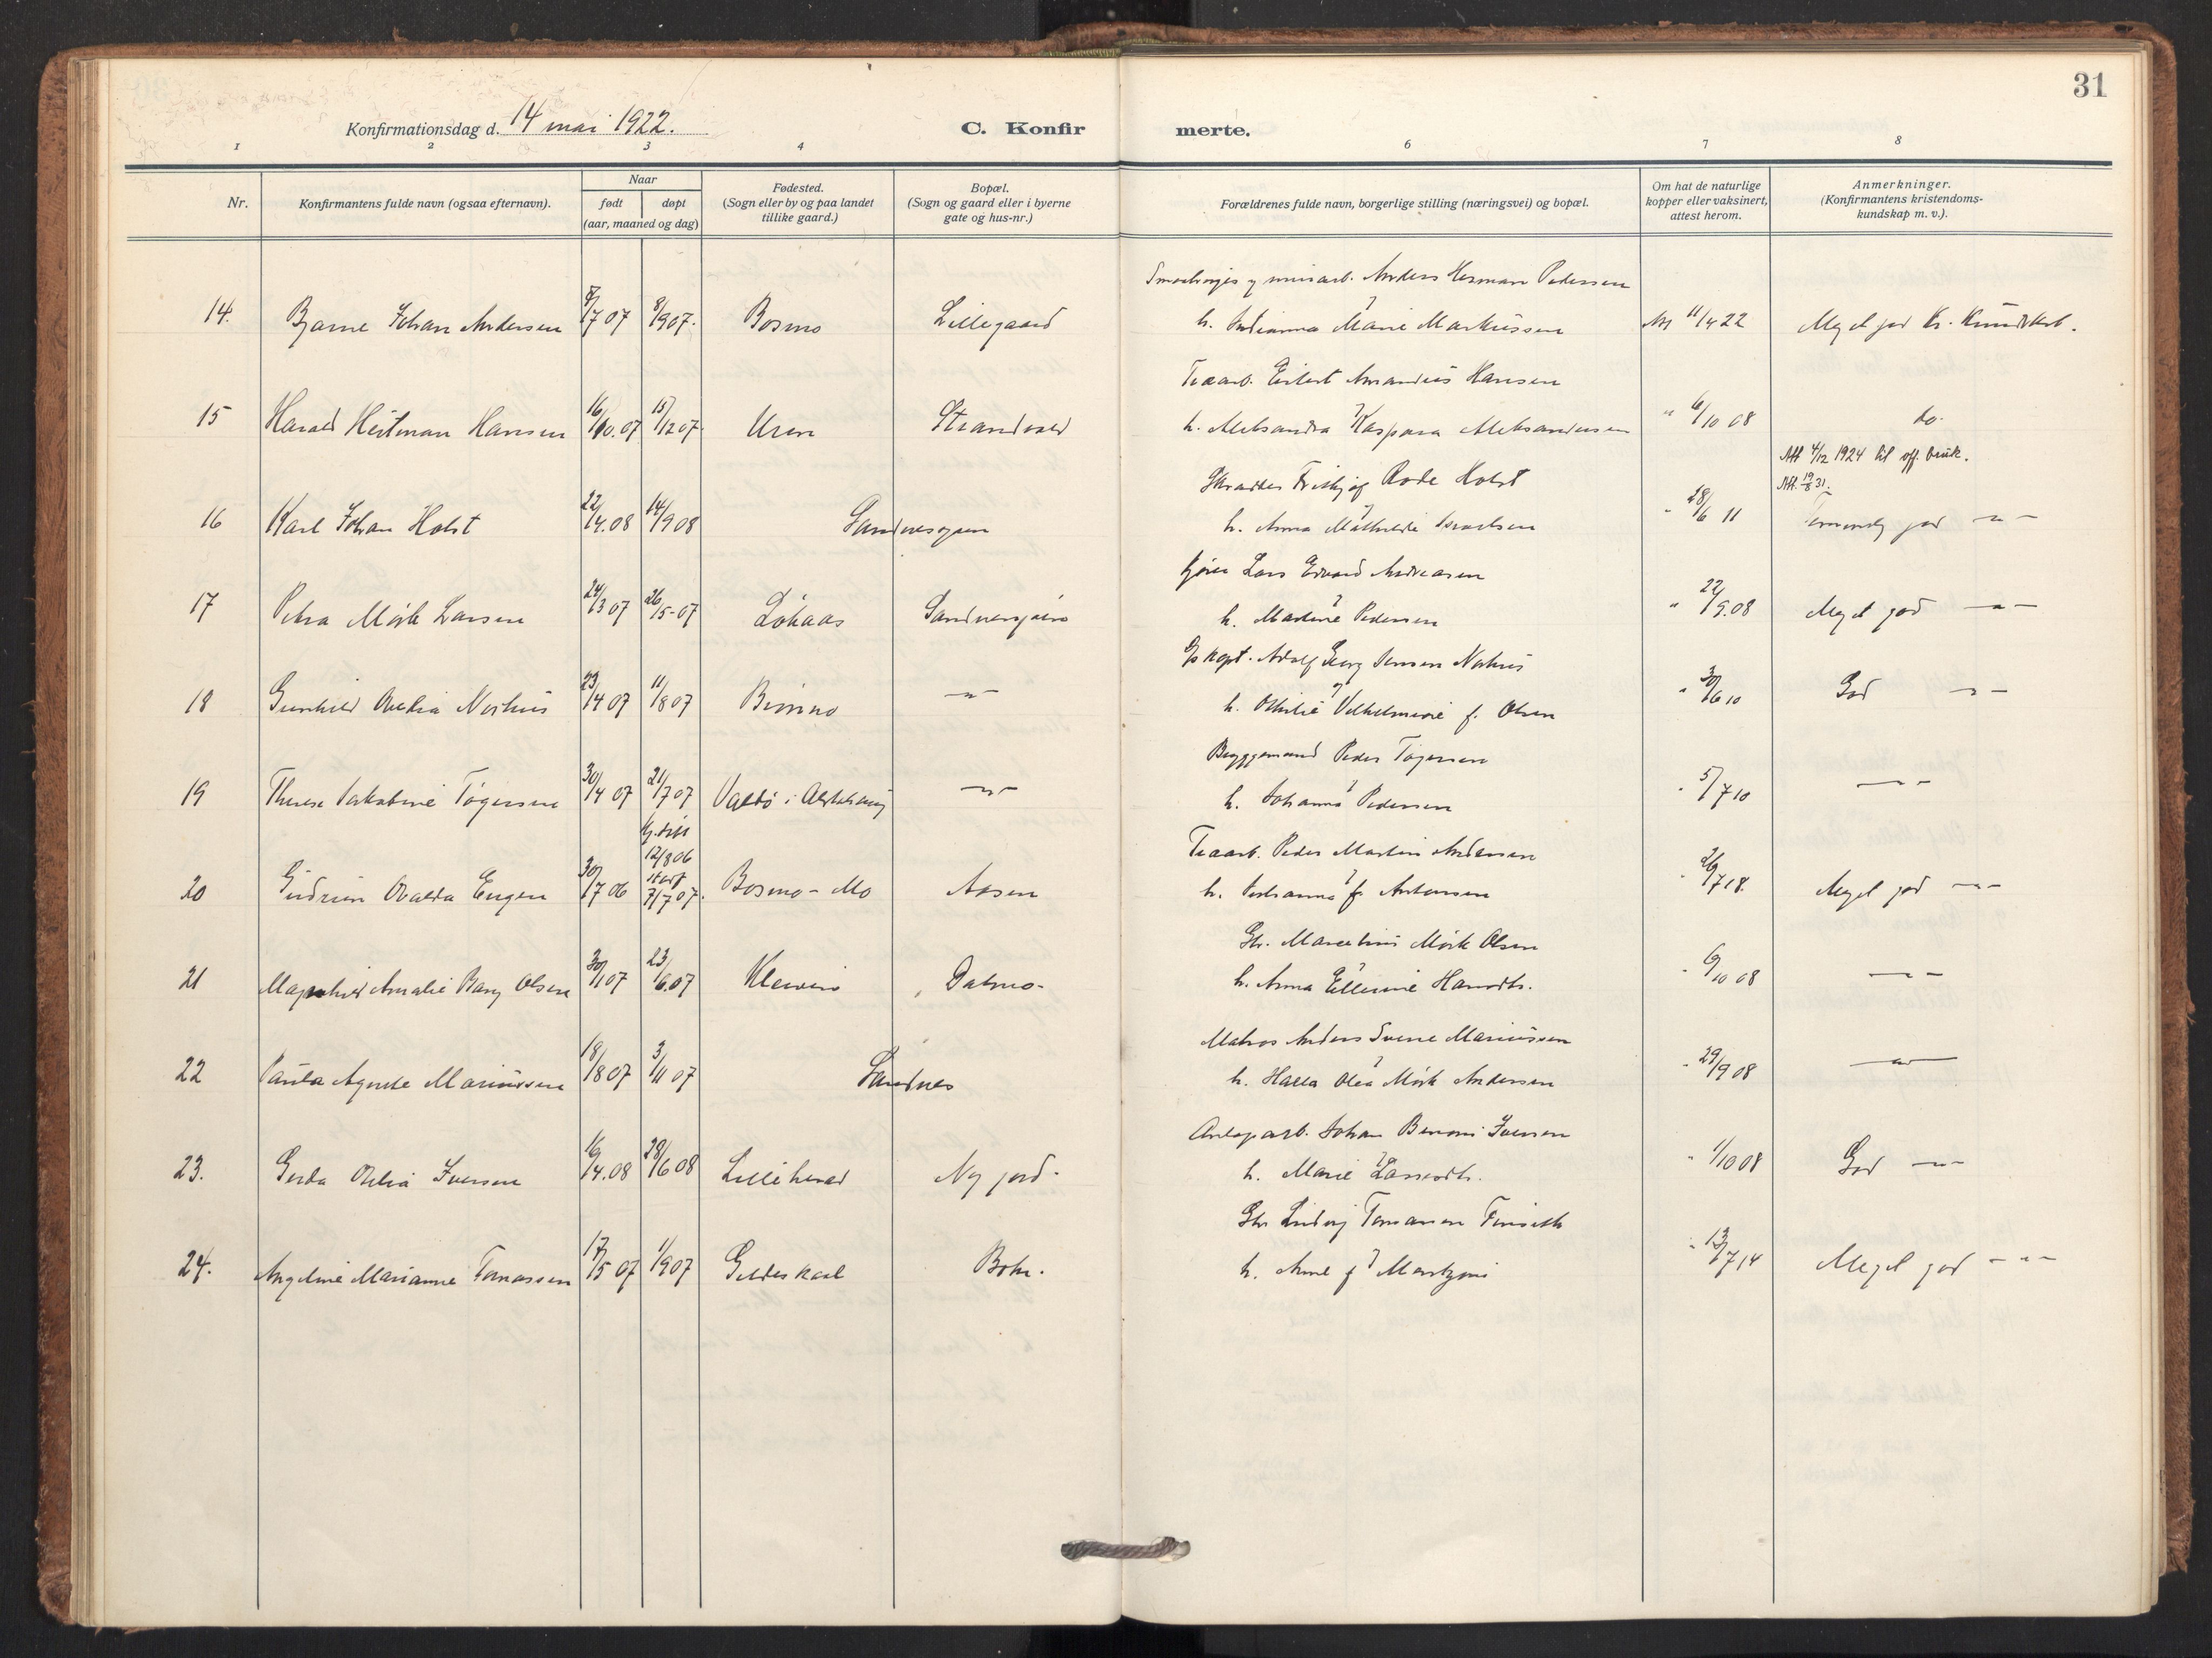 31
Konfirmationsdag d. 14 mai 1922. C. Konfir merte.
1 2 3 4 6 7 8
Nr.
Konfirmantens fulde navn (ogsaa efternavn).
Naar
født døpt
(aar, maaned og dag)
Fødested.
(Sogn eller by og paa landet
tillike gaard.)
Bopæl.
(Sogn og gaard eller i byerne
gate og hus-nr.)
Forældrenes fulde navn, borgerlige stilling (næringsvei) og bopæl.
Om hat de naturlige
kopper eller vaksinert,
attest herom.
Anmerkninger.
(Konfirmantens kristendoms-
kundskap m. v.).
Anders Herman Pedersen
14. Bjarne Johan Andersen 8/7 07 8/9 07. Bosmo Lillegaard h. Marie Markussen 11/4 22 Meget god Kr. Kundskab.
Eilert Amandus Hansen
15 Harald Heitman Hansen 16/10.07 15/12 07 Uren Strandvold h. Aleksandra Kaspara Aleksandersen " 6/10 08 do.
Att 4/12 1924 til off. bruk.
Skrædder Frithjof Rode Holst Att. 19/8 31.
16 Karl Johan Holst 22/4.08 14/9 08 h. Anna Mathilde Israelsen " 28/6 11 god - " -
Lars Edvard Andreasen
17 Petra Mørk Larsen 24/3 07 26/5-07 Løkaas Sandnessjøen h. Martine Pedersen " 22/9.08 Meget god - " -
Adolf Georg Jensen Nerhus
18 Gunhild Nerhus 23/4 07 11/8 07 - " - h. Othilie Vilhelmine f. Olsen " 30/6 10 God - " -
Bryggemand Peder Tøgersen
19 Therese Jakobine Tøgersen 30/4 07 21/7 07 i Alstahaug - " - h. Johanna Pedersen " 5/7 10 - " -
Hj. døbt
12/8 06
Peder Martin Andersen
20 Gudrun Ovalda Eugen 30/7 06 7/7 07. Bosmo - Mo Aasen h. Johanna f. Antonsen Meget god - " -
Gbr. Marcelius Mørk Olsen
21 Magnhild Amalie Bang Olsen 30/1 07 23/6.07 Dalmo. h. Anna Ellerine Hansdtr. " 6/10 08 - " -
Matros Anders Sverre Mariussen
22 Paula Agnete Mariussen 18/8 07 3/11 07 Sandnes h. Halla Olea Mørk Andersen " 29/9 08 - " -
Anlegsarb. Johan Benoni Iversen
23. Gerda Otelia Iversen 16/4.08 28/6 08 Lilleherad Ny jord. h. Marie Larsdtr. " 1/10 08 God - " -
Gbr Ludvig Tomassen Finseth
24. Angeline Marianne Tomassen 17/5 07 1/9 07 Gildeskaal h. Anne f. " 13/7 14 Meget god - " -